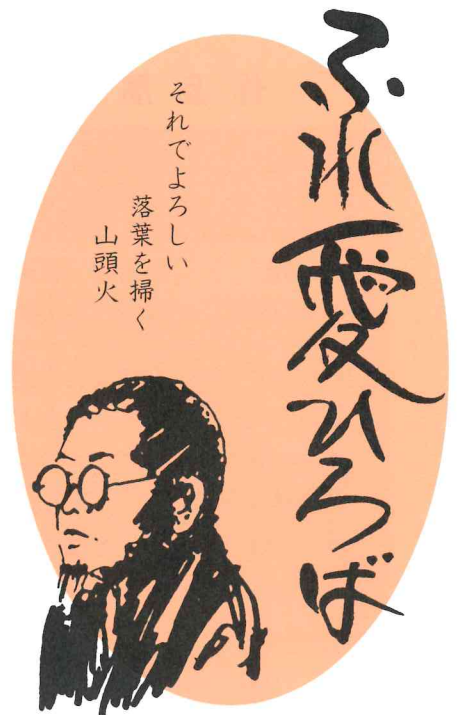 ふれ愛ひろば
それでよろしい
落葉を掃く
山頭火